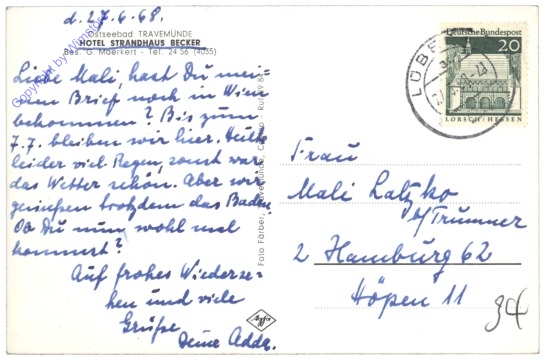 d. 27.6.68.
Ostseebad TRAVEMÜNDE
HOTEL STRANDHAUS BECKER
Bes. G. Maerkert - Tel. 24 56 (4035)
Liebe Mali, hast Du mei-
nen Brief noch in Wien
bekommen? Bis zum
7.7. bleiben wir hier. Heute
leider viel Regen, sonst war
das Wetter schön. Aber wir
genießen trotzdem das Baden.
Ob Du nun wohl mal
kommst?
Auf frohes Wiederse-
hen und viele
Grüße
Deine Adda.
Foto Färber, Travemünde, Casino - Ruf
Agfa
Copyright by
LÜBE
Deutsche Bundespost
20
LORSCH/HESSEN
Frau
Mali Latzko
b/Trummer
2 Hamburg 62
Höpen 11
34